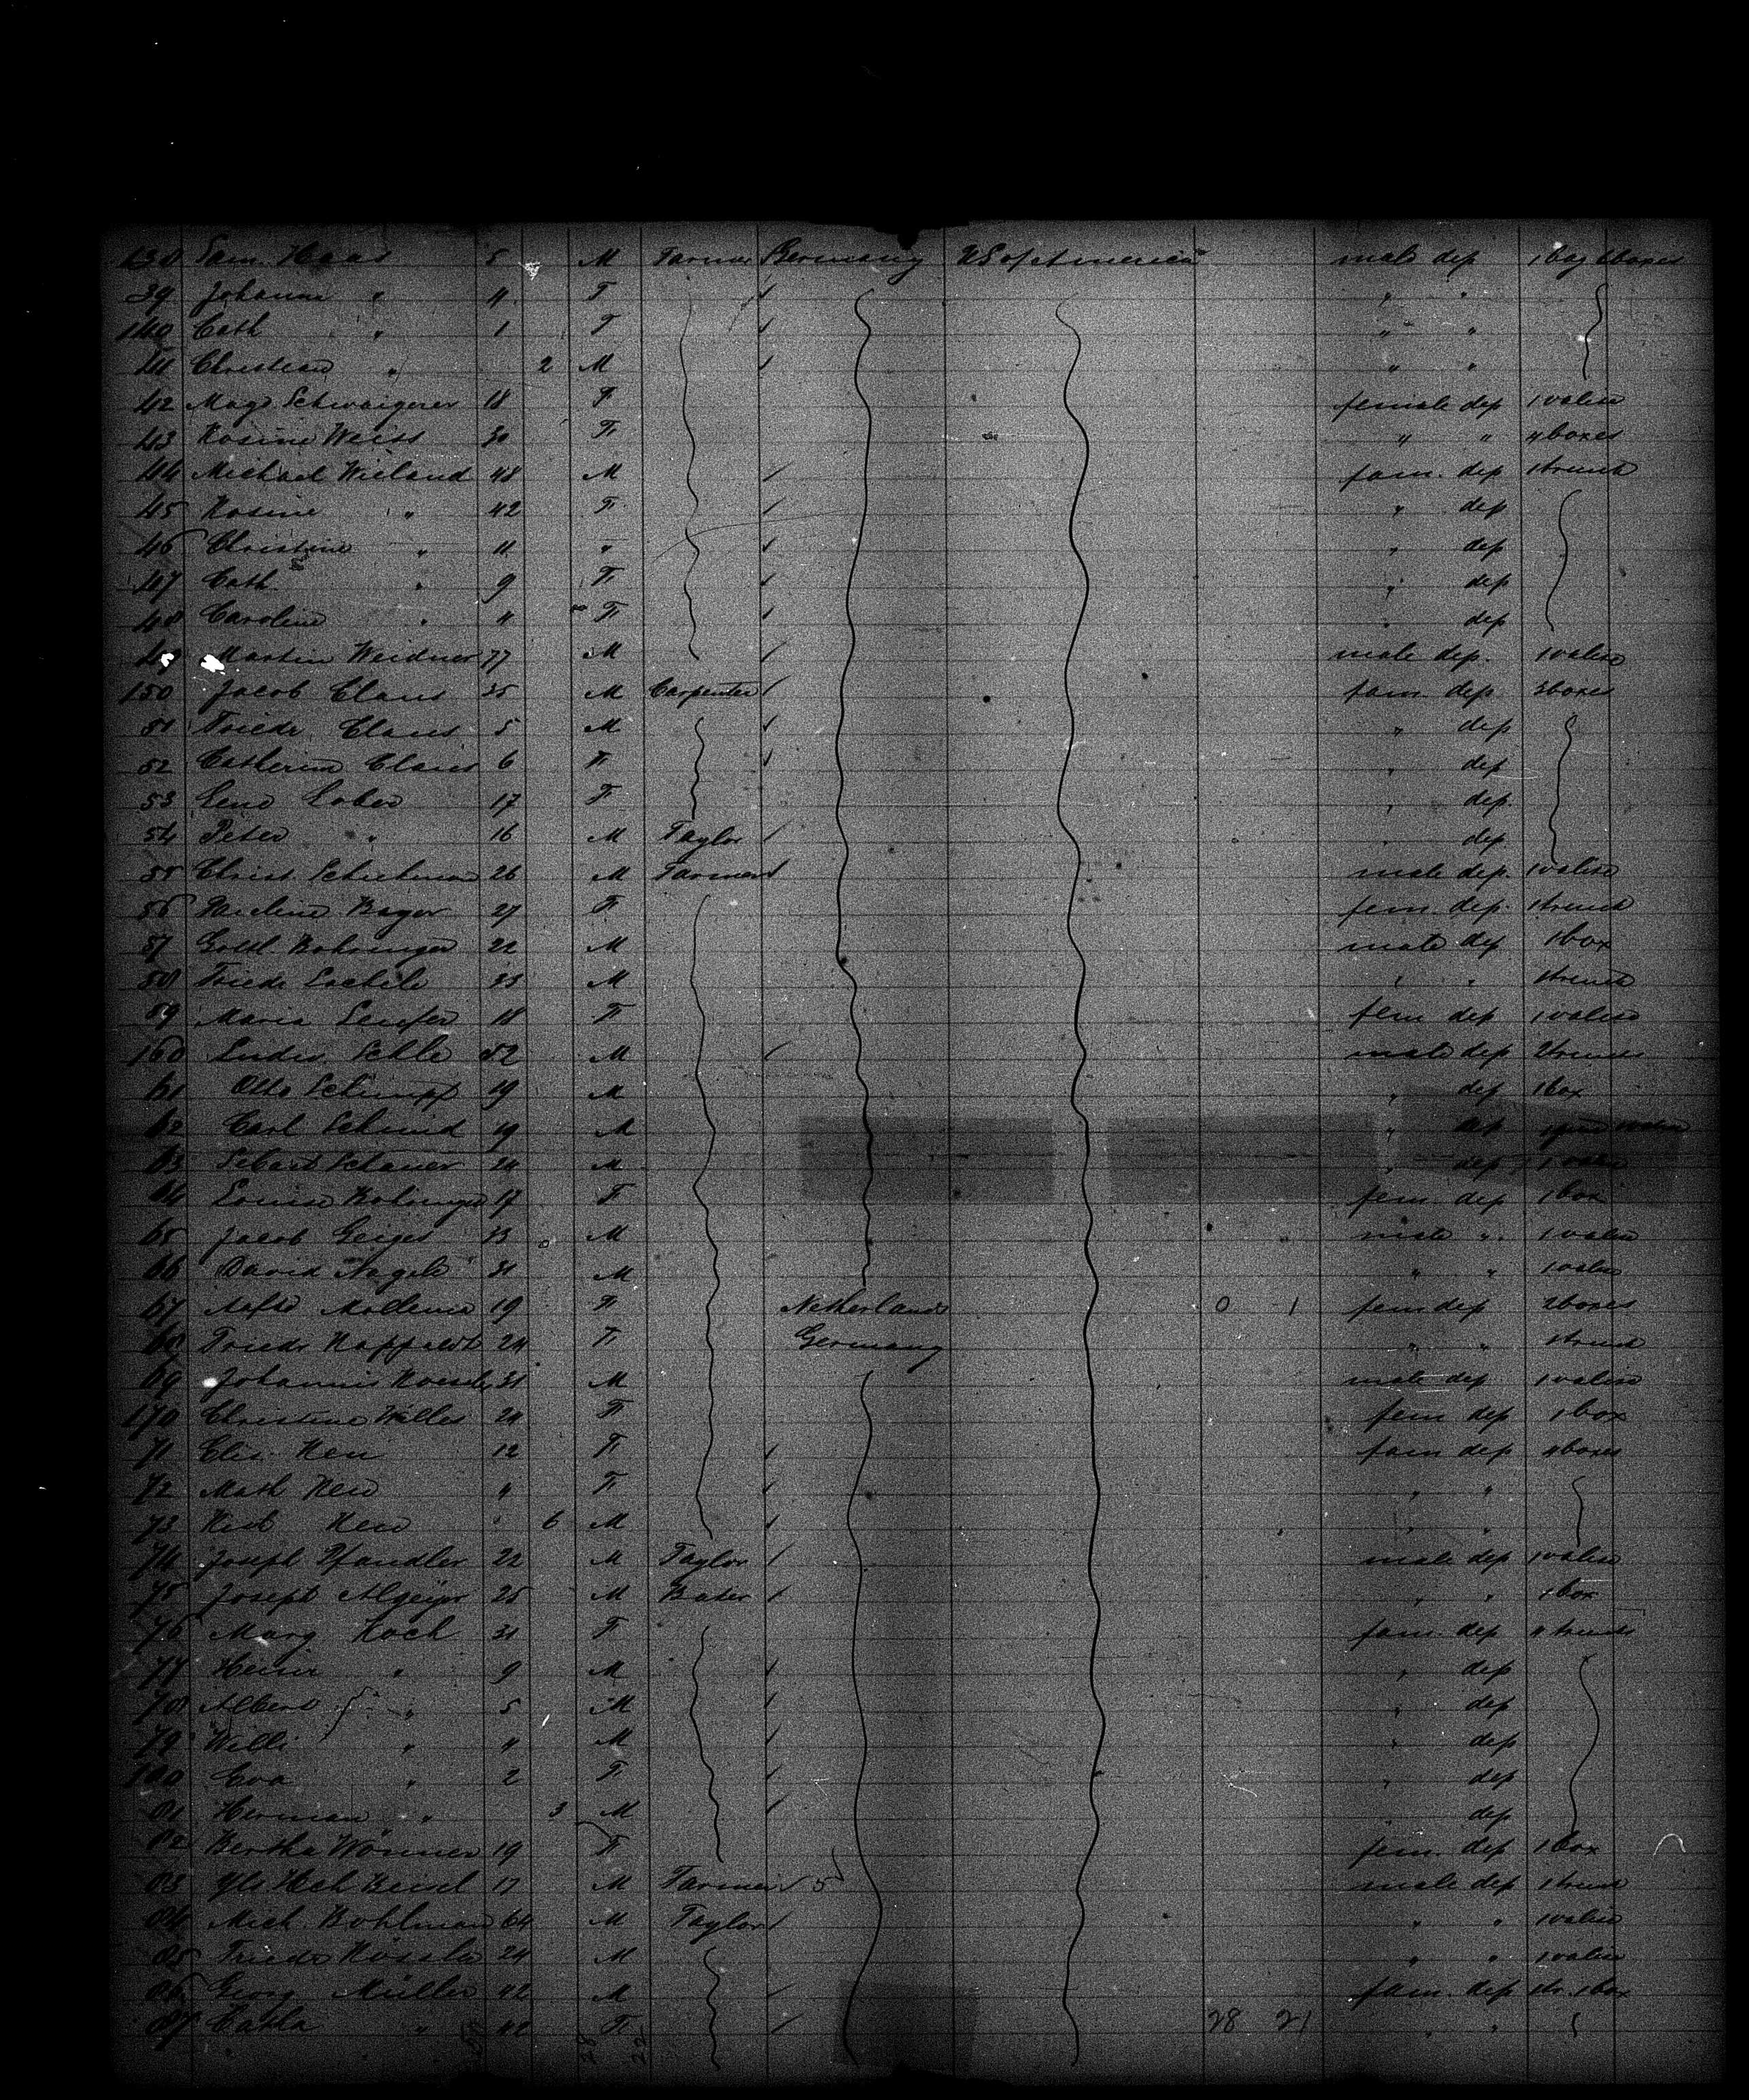 138 Sam. Haas 5 M Farmer Germany US of America male dep 1 bag 6 boxes
39 Johanna " 4 F " "
140 Cath " 1 F " "
41 Christian " 2 M " "
42 Magd. Schwaigerer 18 F female dep 1 valise
43 Rosine Weiss 30 F " " 4 boxes
44 Michael Wieland 48 M fam. dep 1 trunk
45 Rosine " 42 F " dep
46 Christine " 11 " " dep
47 Cath. " 9 F " dep
48 Caroline " 4 F " dep
49 Martin Weidner 77 M male dep. 1 valise
150 Jacob Claus 35 M Carpenter fam. dep 3 boxes
51 Friedr. Claus 5 M " dep
52 Catherina Claus 6 F " dep
53 Lena Lober 17 F " dep.
54 Peter " 16 M Taylor " dep
55 Christ. 26 M Farmer male dep. 1 valise
56 Pauline Bayer 27 F fem. dep. 1 trunk
57 Gottl. Bohringer 22 M male dep 1 box
58 Friedr 33 M " " 1 trunk
59 Maria 18 F fem dep 1 valise
160 52 M male dep 2 trunks
61 Otto Schimpf 19 M " dep 1 box
62 Carl Schmid 19 M " dep
63 Schauer 24 M " dep 1 valise
64 Louise Bohringer 17 F fem. dep 1 box
65 Jacob Geiger 33 M male " 1 valise
66 David Nagele 31 M " " 1 valise
67 19 F Netherlands 0 1 fem dep 2 boxes
68 Friedr 24 F Germany " " 1 trunk
69 Johannes 31 M male dep 1 valise
170 Christine Willes 24 F fem dep 1 box
71 Elis. Neu 12 F fam dep 4 boxes
72 Math Neu 4 F " "
73 Neu 6 M " "
74 Joseph Pfandler 22 M Taylor male dep 1 valise
75 Joseph Algeyer 25 M Baker " " 1 box
76 Marg Koch 31 F fam. dep 4 trunks
77 Heinr " 9 M " dep
78 Albert " 5 M " dep
79 Willi " 4 M " dep
180 Eva " 2 F " dep
81 Herman " 3 M " dep
82 Bertha Wörner 19 F fem. dep 1 box
83 17 M Farmer 5 male dep 1 trunk
84 Mich. Bohlman 64 M Taylor " " 1 valise
85 Friedr Kössler 24 M " " 1 valise
86 Georg Müller 42 M fam. dep 1 tr. 1 box
87 Catha " 42 F 28 21 " "
28 22